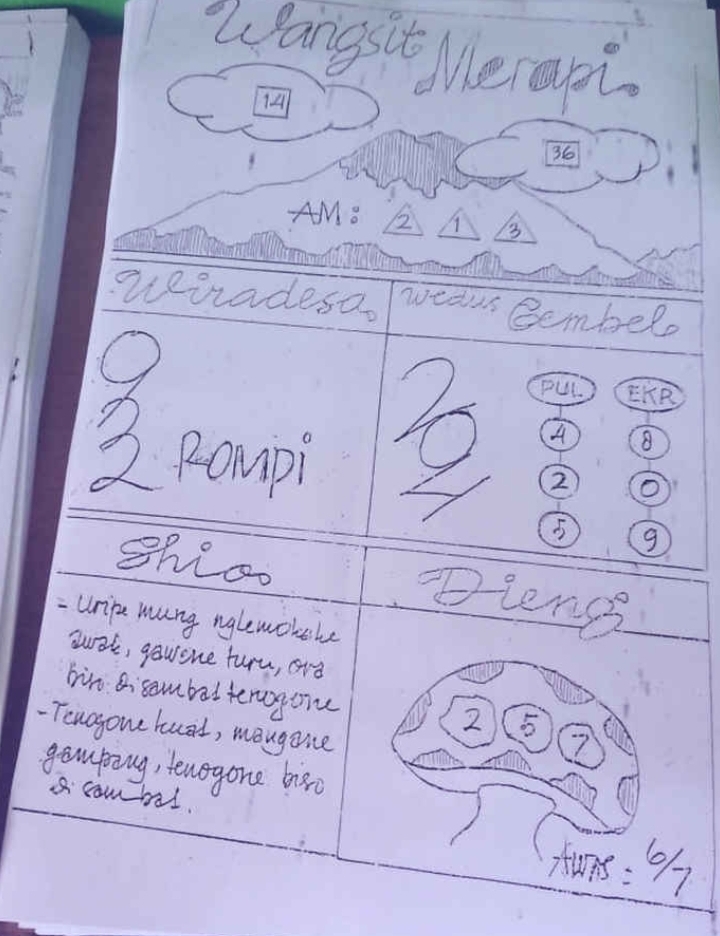 Wangsit Merapi
14
36
AM: 2 1 3
Wiradesa
9
3
2 ROMPI
Wedus Gembel
2
9
4
PUL EKR
4 8
2 0
5 9
Shio
= Uripe mung nglemokake
awak, gawene turu, ora
biso disambat tenogone
- Tenogone kuat, mangane
gampang, tenogone biso
di sambat.
Dieng
2 5 7
AWAS = 6/7